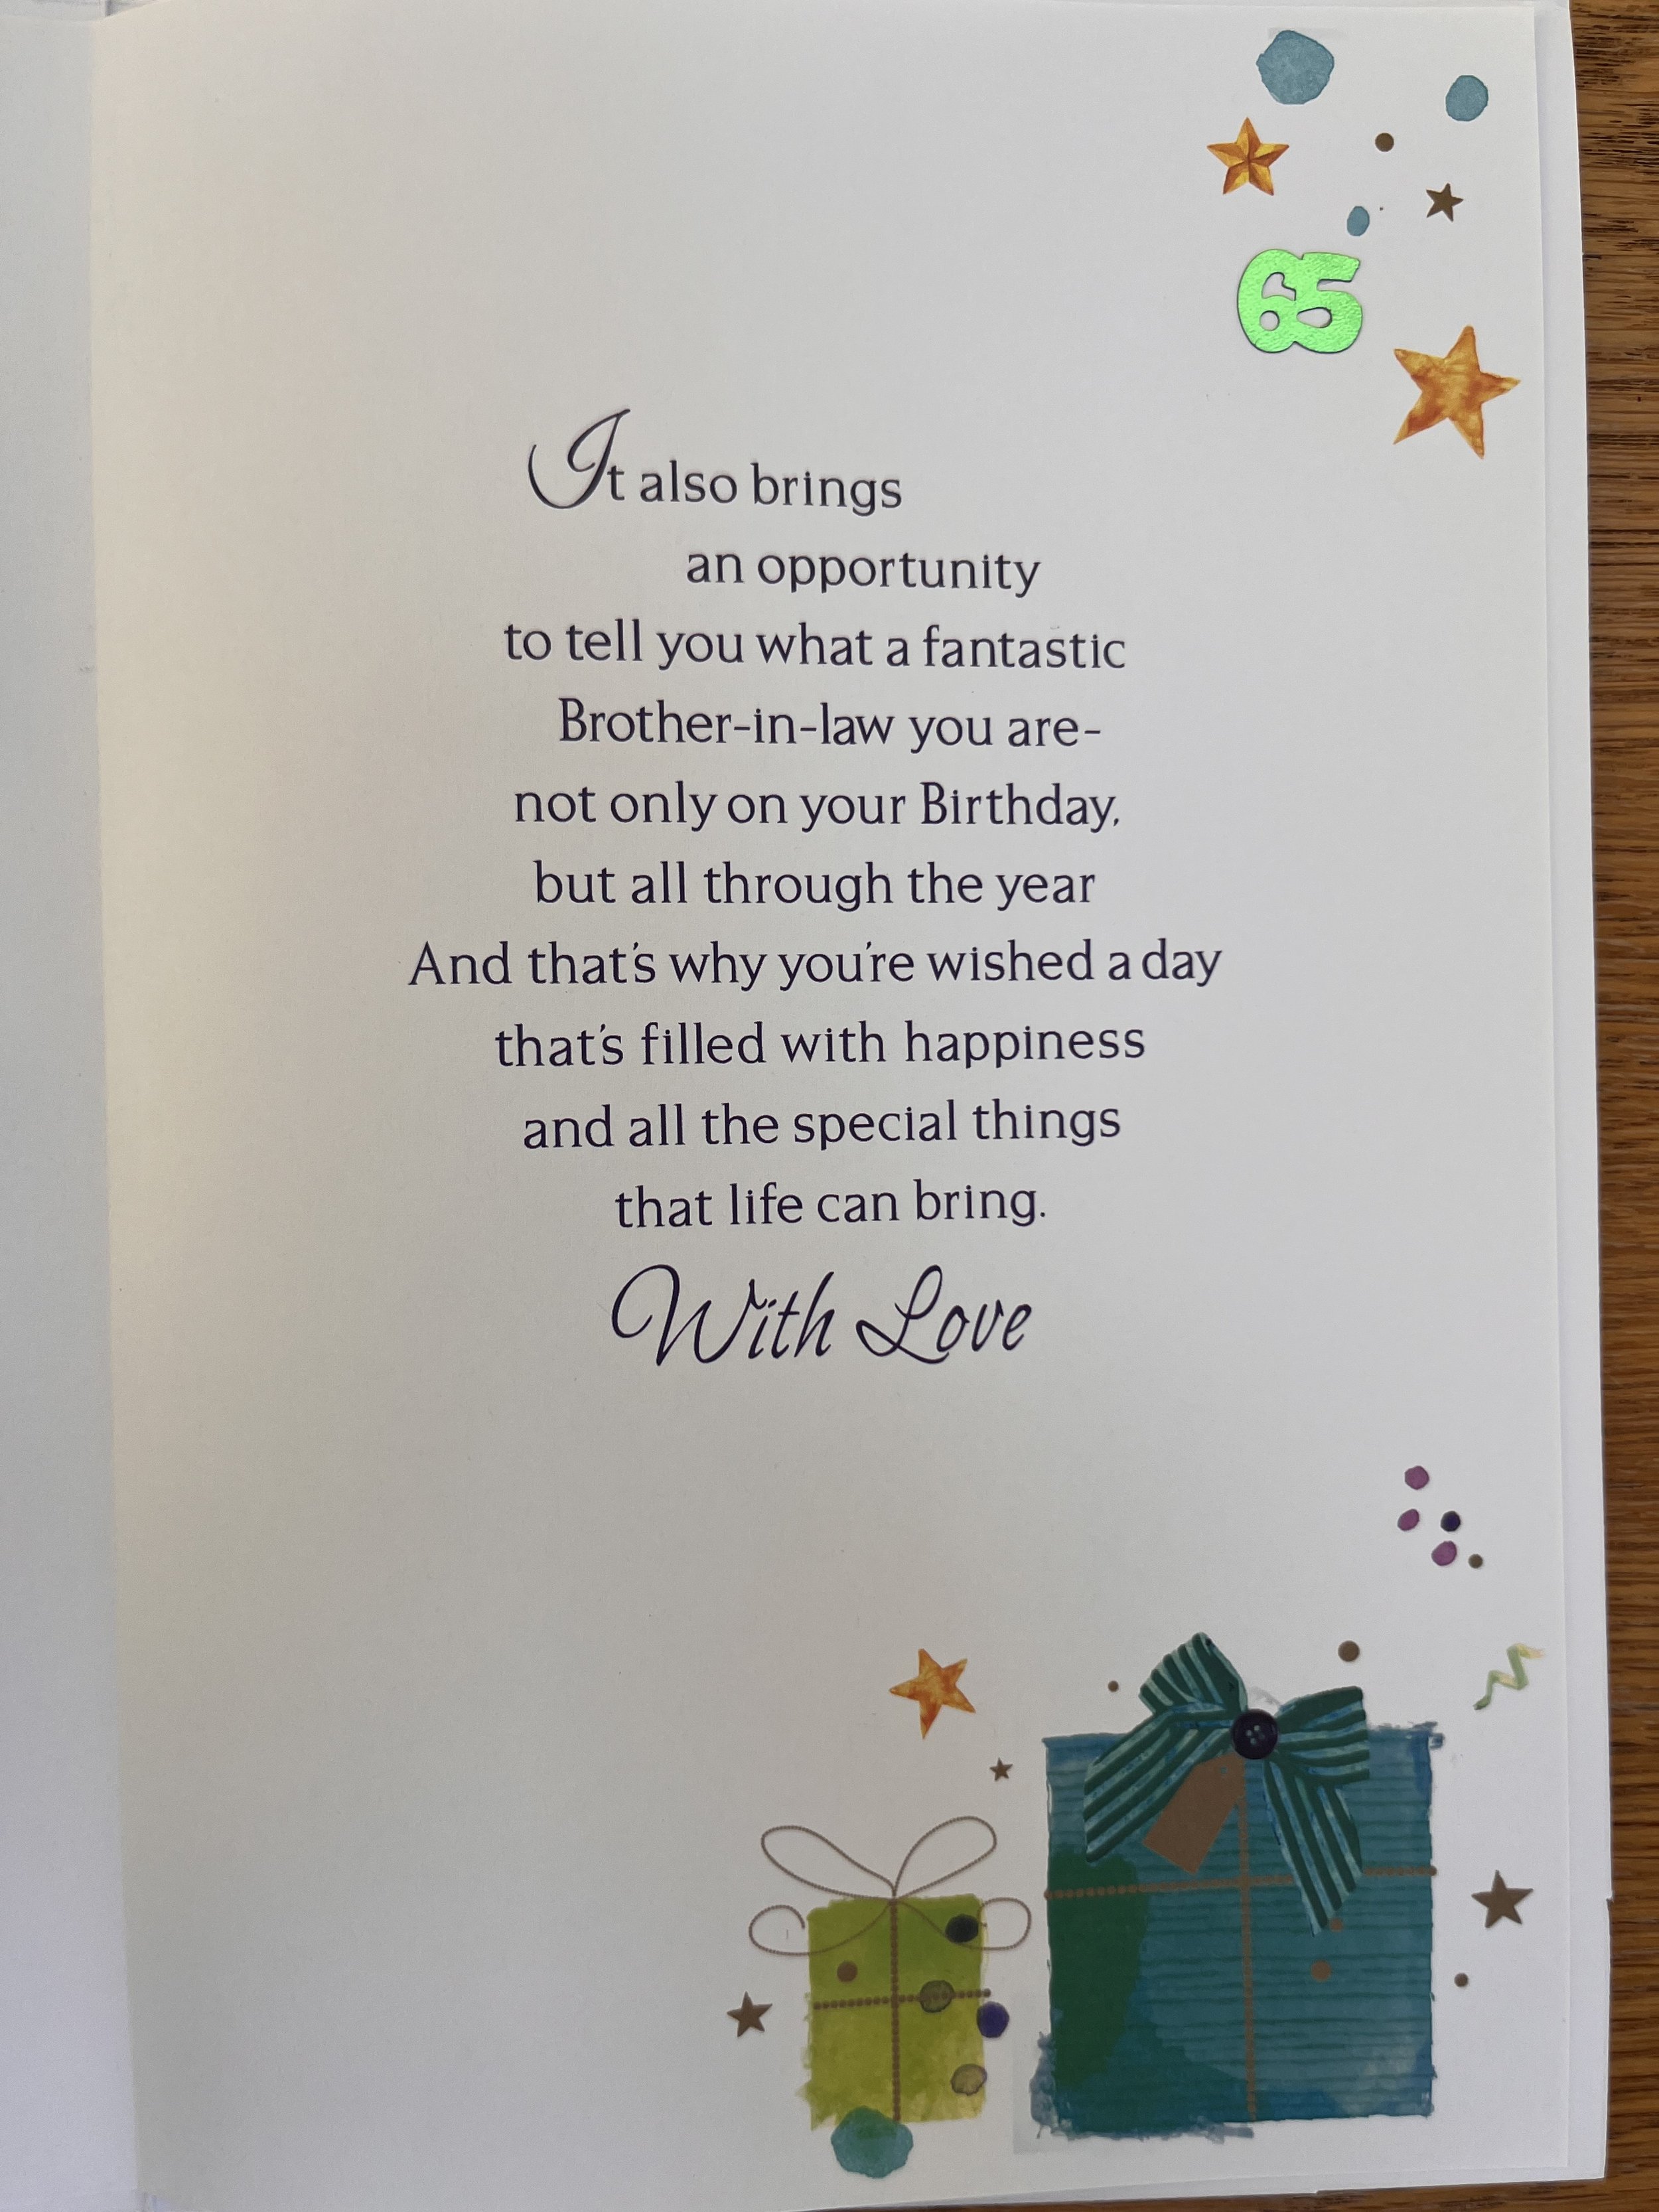 65
It also brings
an opportunity
to tell you what a fantastic
Brother-in-law you are-
not only on your Birthday,
but all through the year
And that's why you're wished a day
that's filled with happiness
and all the special things
that life can bring.
With Love